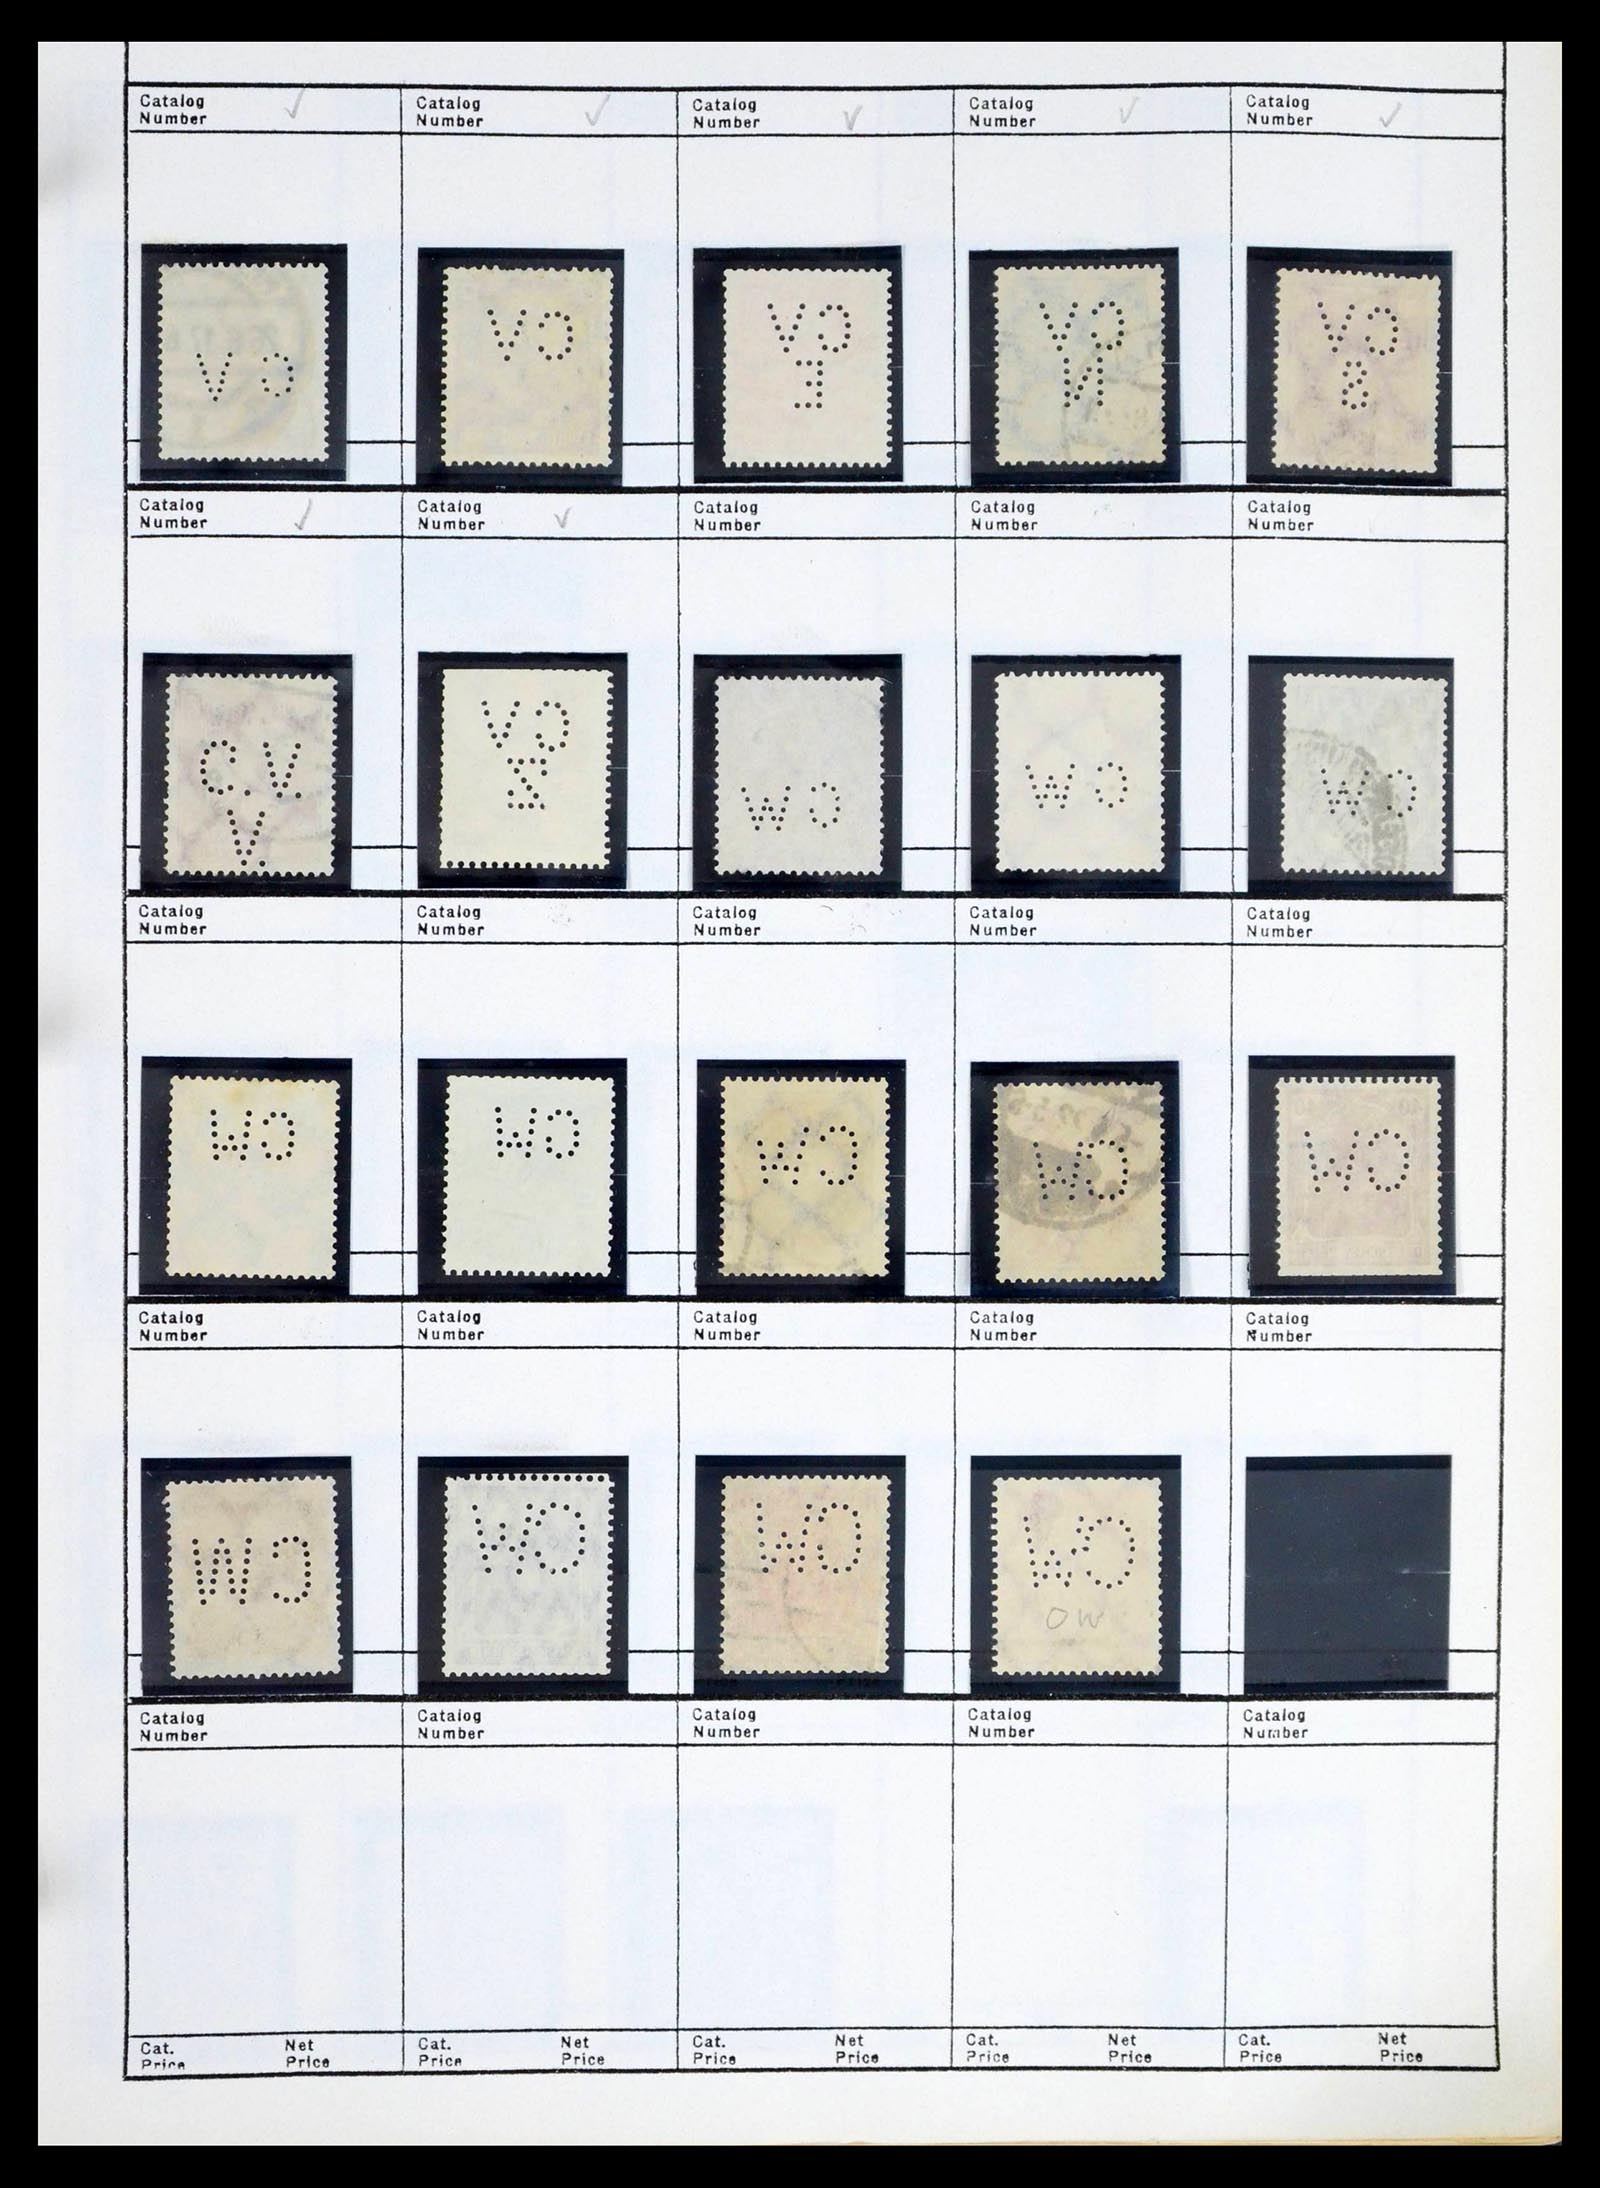 Catalog Number ✓ Catalog Number ✓ Catalog Number ✓ Catalog Number ✓ Catalog Number ✓
VC VC VC VC VC
E N S
Catalog Number ✓ Catalog Number ✓ Catalog Number Catalog Number Catalog Number
C.V. VC WC WC WC
V. N
Catalog Number Catalog Number Catalog Number Catalog Number Catalog Number
WC WC WC WC WC
40 40
Catalog Number Catalog Number Catalog Number Catalog Number Catalog Number
WC WC WC WC
OW
Catalog Number Catalog Number Catalog Number Catalog Number Catalog Number
Cat. Price Net Price Cat. Price Net Price Cat. Price Net Price Cat. Price Net Price Cat. Price Net Price